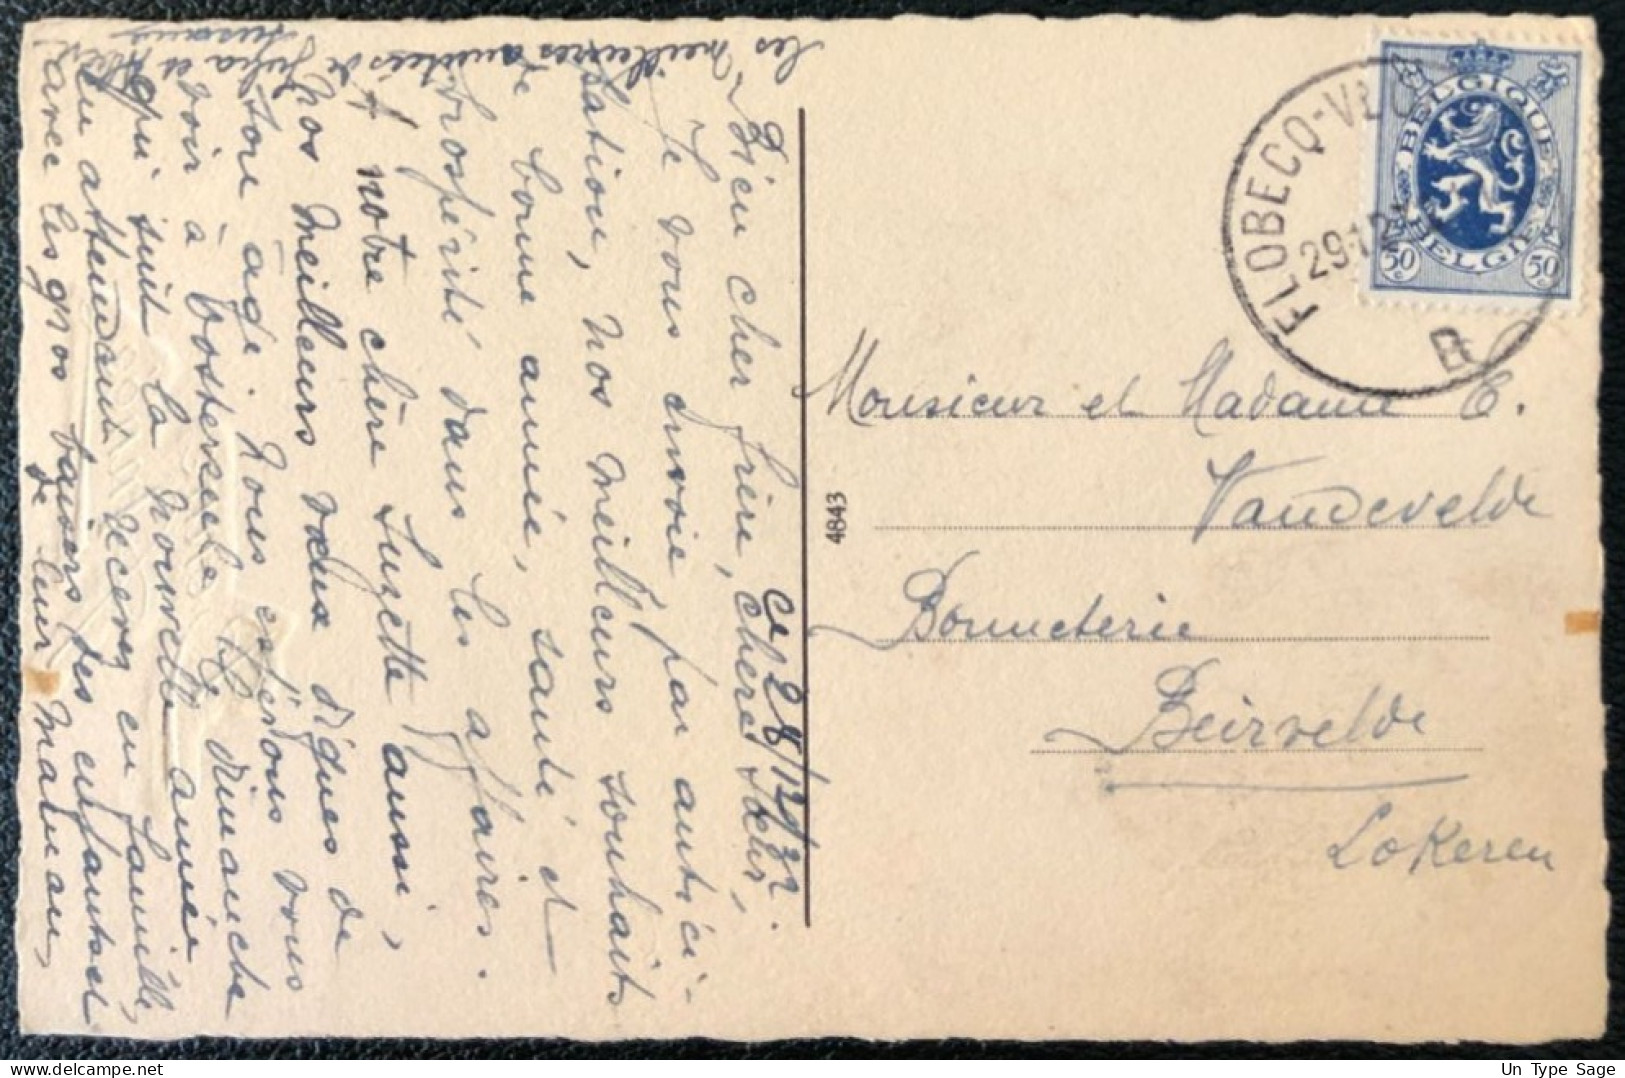 ce 28/12/32.
Bien cher frère, chère Sœur,
Je vous envoie, par antici-
pation, nos meilleurs souhaits
de bonne année, santé et
prospérité dans les affaires.
A notre chère Suzette aussi,
nos meilleurs vœux dignes de
son âge. Nous espérons vous
voir à Bosterseele le dimanche
qui suit la nouvelle année
En attendant recevez en famille,
avec les gros baisers des enfants et
de leur maman,
les meilleures amitiés de
BELGIQUE
BELGIE
50 c 50 c
FLOBECQ-VL
29-12
B
Monsieur et Madame E.
Vandevelde
Bonneterie
Beirvelde
Lokeren
4843
Un Type Sage